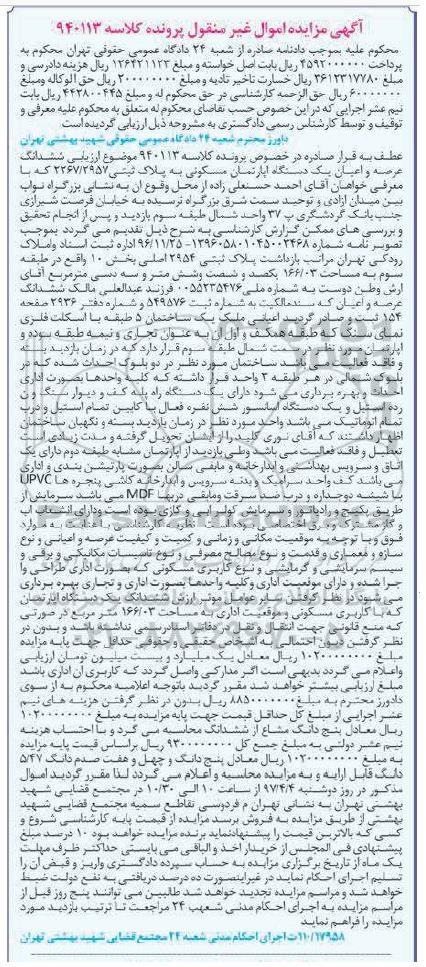 آگهی مزایده اموال غیر منقول پرونده کلاسه ۹۴۰۱۱۳
محکوم علیه بموجب دادنامه صادره از شعبه ۲۴ دادگاه عمومی حقوقی تهران محکوم به
پرداخت ۴۵۹۲۰۰۰۰۰۰ ریال بابت اصل خواسته و مبلغ ۱۲۶۴۲۱۱۲۳ ریال هزینه دادرسی و
مبلغ ۳۶۱۲۳۱۷۷۸۰ ریال خسارت تاخیر تادیه و مبلغ ۲۰۰۰۰۰۰۰۰ ریال حق الوکاله ومبلغ
۶۰۰۰۰۰۰۰ ریال حق الزحمه کارشناسی در حق محکوم له و مبلغ ۴۴۲۸۰۰۴۴۵ ریال بابت
نیم عشر اجرایی که در این خصوص حسب تقاضای محکوم له متعلق به محکوم علیه معرفی و
توقیف و توسط کارشناس رسمی دادگستری به مشروحه ذیل ارزیابی گردیده است.
داورز محترم شعبه ۲۴ دادگاه عمومی حقوقی شهید بهشتی تهران
عطف به قرار صادره در خصوص پرونده کلاسه ۹۴۰۱۱۳ موضوع ارزیابی ششدانگ
عرصه و اعیان یک دستگاه آپارتمان مسکونی به پلاک ثبتی ۲۲۶۷/۲۹۵۷ که با
معرفی خواهان آقای احمد حسنعلی زاده از محل وقوع آن به نشانی بزرگراه نواب
بین میدان آزادی و توحید سمت شرق بزرگراه نرسیده به خیابان فرصت شیرازی
جنب بانک گردشگری پ ۳۷ واحد شمال طبقه سوم بازدید و پس از انجام تحقیق
و بررسی های ممکن گزارش کارشناسی به شرح ذیل تقدیم می گردد بموجب
تصویر نامه شماره ۱۳۹۶۰۵۸۰۱۰۴۵۰۰۲۴۶۸- ۹۶/۱۱/۲۵ اداره ثبت اسناد واملاک
رودکی تهران مراتب بازداشت پلاک ثبتی ۲۹۵۴ اصلی بخش ۱۰ واقع در طبقه
سوم به مساحت ۱۶۶/۰۳ یکصد و شصت وشش متر و سه دسی مترمربع آقای
ارش وطن دوست به شماره ملی ۰۰۵۵۲۳۵۴۷۶ فرزند عبدالعلی مالک ششدانگ
عرصه و اعیان که سندمالکیت به شماره ثبت ۵۴۹۵۷۶ و شماره دفتر ۲۹۳۶ صفحه
۱۵۴ ثبت و صادر گردید اعیانی ملک یک ساختمان ۵ طبقه با اسکلت فلزی
طبقه همکف و اول آن به عنوان تجاری و نیمه طبقه بوده و
سمت شمال طبقه سوم قرار دارد که در زمان بازدید
و فاقد فعالیت می باشد ساختمان مورد نظر در دو بلوک احداث شده که در
بلوک شمالی در هر طبقه ۲ واحد قرار داشته که کلیه واحدها بصورت اداری
احداث و بهره برداری می شود دارای یک دستگاه راه پله کف و دیوار سنگ
و یک دستگاه آسانسور شش نفره فعال با کابین تمام استیل و درب
تمام اتوماتیک می باشد واحد مورد نظر در زمان بازدید بسته و نگهبان ساختمان
اظهار داشتند که آقای نوری کلید را از ایشان تحویل گرفته و مدت زیادی است
تعطیل و فاقد فعالیت می باشد وطی بازدید از آپارتمان مشابه طبقه دوم دارای یک
اتاق و سرویس بهداشتی و آبدارخانه و مابقی سالن بصورت پارتیشن بندی و اداری
می باشد کف واحد سرامیک و بدنه سرویس و آبدارخانه کاشی پنجره ها UPVC
با شیشه دوجداره و درب ضد سرقت ومابقی دربها MDF می باشد سرمایش از
طریق پکیج و رادیاتور و سرمایش کولر آبی و گازی بوده است ودارای انشعابات آب
و گاز
فوق وبا توجه به موقعیت مکانی و زمانی و کمیت و کیفیت عرصه و اعیانی و نوع
سازه و معماری و قدمت و نوع مصالح مصرفی و نوع تاسیسات مکانیکی و برقی و
سیستم سرمایشی و گرمایشی و نوع کاربری مسکونی که بصورت اداری طراحی وا
جرا شده و دارای موقعیت اداری وکلیه واحدها بصورت اداری و تجاری بهره برداری
می شود با در نظر گرفتن سایر عوامل موثر ارزش ششدانگ یک دستگاه آپارتمان
که با کاربری مسکونی و موقعیت اداری به مساحت ۱۶۶/۰۳ متر مربع در صورتی
که منع قانونی جهت انتقال و نقل در دفاتر اسناد رسمی نداشته باشد و بدون در
نظر گرفتن دیون احتمالی به اشخاص حقیقی و حقوقی حداقل جهت پایه مزایده
۱۰۲۰۰۰۰۰۰۰۰ ریال معادل یک میلیارد و بیست میلیون تومان ارزیابی
واعلام می گردد بدیهی است اگر مدارکی واصل گردد که کاربری آن اداری باشد
مبلغ ارزیابی بیشتر خواهد شد مقرر گردید باتوجه اعلامیه محکوم به از سوی
دادورز محترم به مبلغ ۸۸۵۰۰۰۰۰۰۰ ریال بدون در نظر گرفتن هزینه های نیم
عشر اجرایی از مبلغ کل حداقل قیمت جهت پایه مزایده به مبلغ ۱۰۲۰۰۰۰۰۰۰۰
ریال معادل پنج دانگ مشاع از ششدانگ محاسبه می گرد و با احتساب هزینه
نیم عشر دولتی به مبلغ جمع کل ۹۳۰۰۰۰۰۰۰۰ ریال براساس قیمت پایه مزایده
به مبلغ ۱۰۲۰۰۰۰۰۰۰۰ ریال معادل پنج دانگ و چهل و هفت صدم دانگ ۵/۴۷
دانگ قابل ارایه و به مزایده محاسبه و اعلام می گردد لذا مقرر گردید اموال
مذکور در روز دوشنبه ۹۷/۴/۴ از ساعت ۱۰ الی ۱۰/۳۰ در مجتمع قضایی شهید
بهشتی تهران به نشانی تهران م فردوسی تقاطع سمیه مجتمع قضایی شهید
بهشتی از طریق مزایده به فروش برسد مزایده از قیمت پایه کارشناسی شروع و
کسی که بالاترین قیمت را پیشنهادنماید برنده مزایده خواهد بود ۱۰ درصد مبلغ
پیشنهادی فی المجلس از خریدار اخذ و الباقی می بایستی حداکثر ظرف مهلت
یک ماه از تاریخ برگزاری مزایده به حساب سپرده دادگستری واریز و قبض آن را
تسلیم اجرای احکام نماید در غیراینصورت ده درصد دریافتی به نفع دولت ضبط
خواهد شد و مراسم مزایده تجدید خواهد شد طالبین می توانند پنج روز قبل از
مراسم مزایده به اجرای احکام مدنی شعبهب ۲۴ مراجعت تا ترتیب بازدید مورد
مزایده را فراهم نماید
۱۱۰/۱۷۹۵۸ت اجرای احکام مدنی شعبه ۲۴ مجتمع قضایی شهید بهشتی تهران